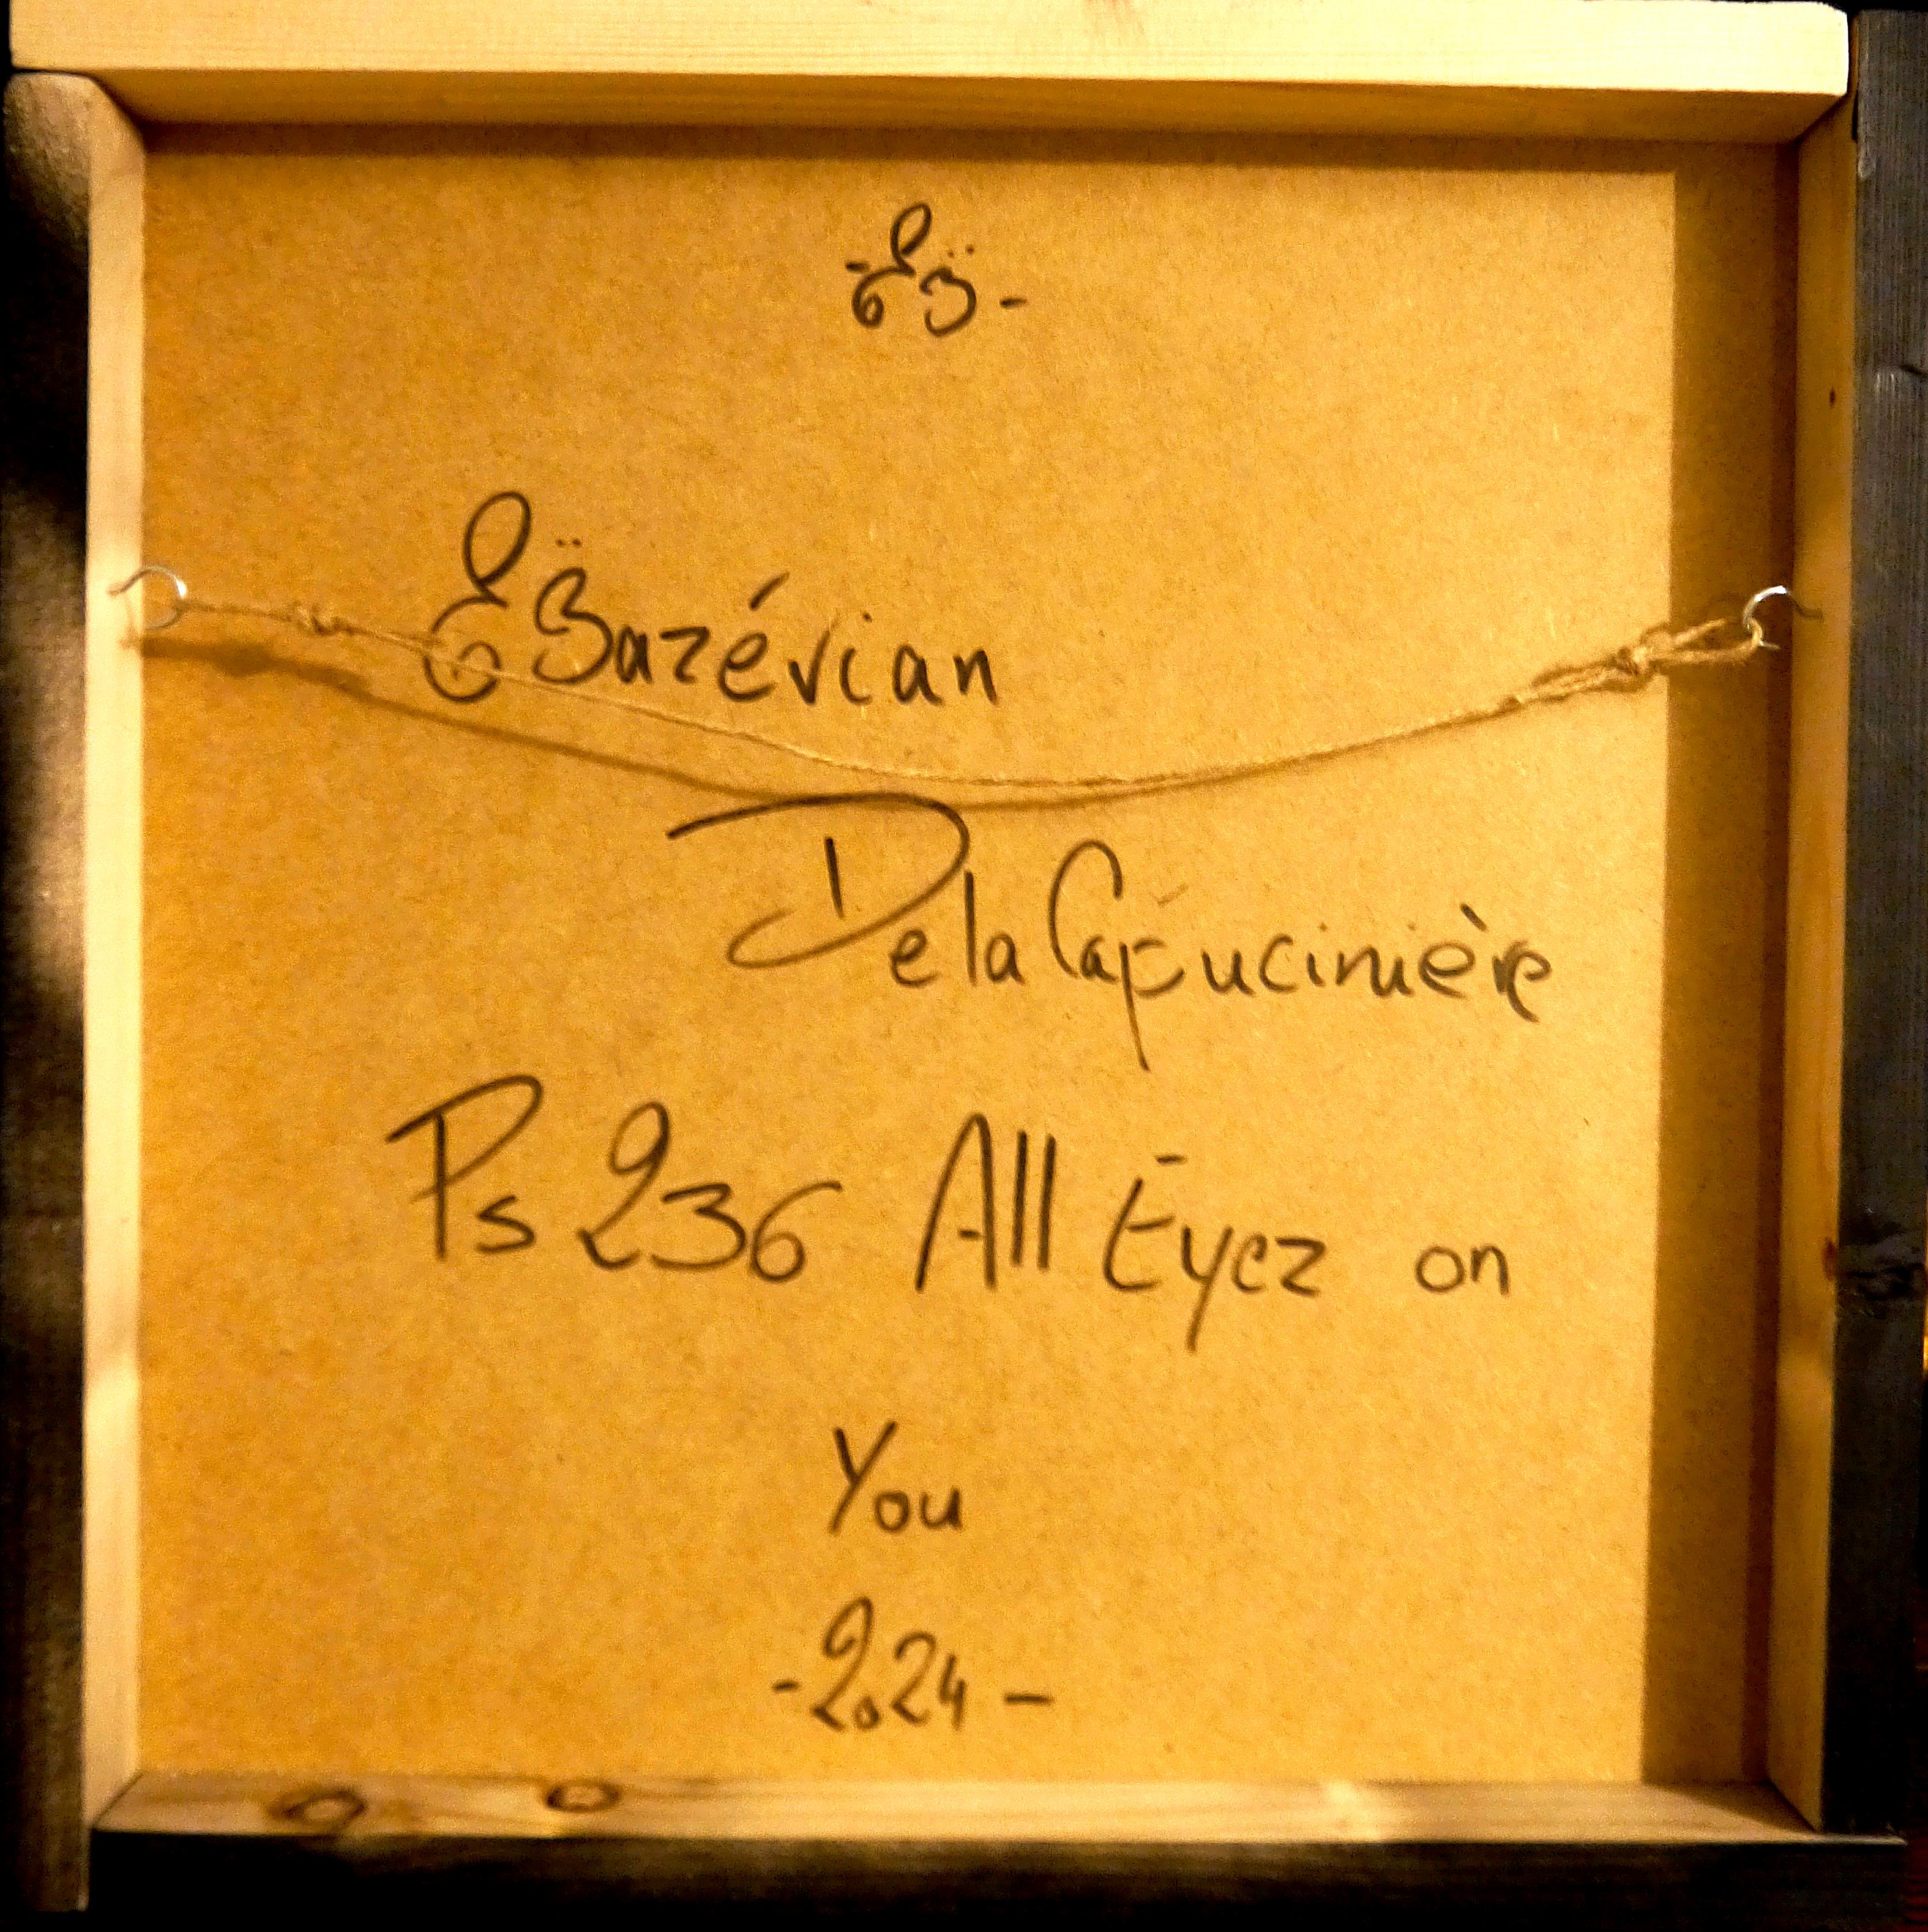 -EB̈-
EB̈azévian
De la Capucinière
Ps 236 All Eyez on
You
-2024-